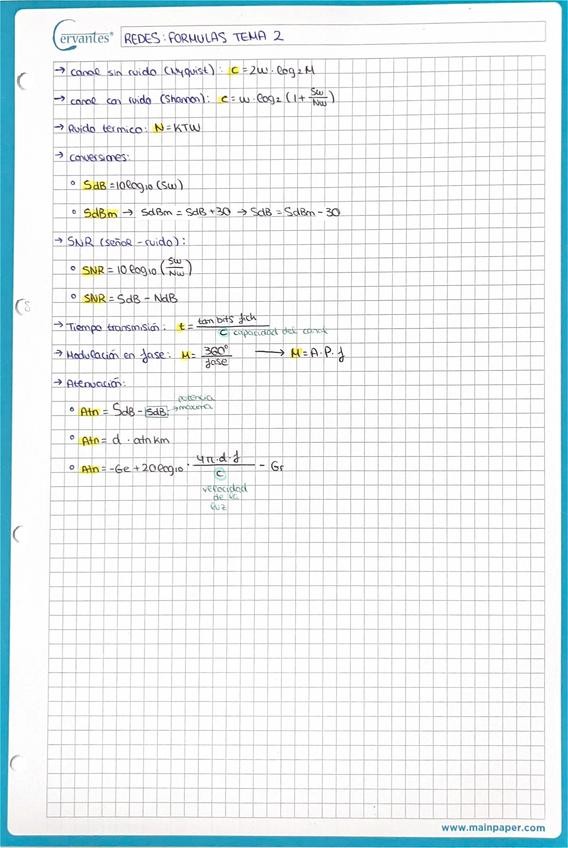 Cervantes® REDES: FORMULAS TEMA 2
→ canal sin ruido (Nyquist): C = 2W · log₂ M
→ canal con ruido (Shannon): C = W · log₂ (1 + Sw/Nw)
→ Ruido térmico: N = KTW
→ conversiones:
° SdB = 10 log10 (Sw)
° SdBm → SdBm = SdB + 30 → SdB = SdBm - 30
→ SNR (señal - ruido):
° SNR = 10 log10 (Sw/Nw)
° SNR = SdB - NdB
→ Tiempo transmisión: t = tan bits fich / C capacidad del canal
→ Modulación en fase: M = 360°/fase → M = A · P · f
→ Atenuación:
° Atn = SdB - SdB → potencia máxima
° Atn = d · atn km
° Atn = -Ge + 20 log10 · 4π·d·f / C - Gr
velocidad
de la
luz
www.mainpaper.com